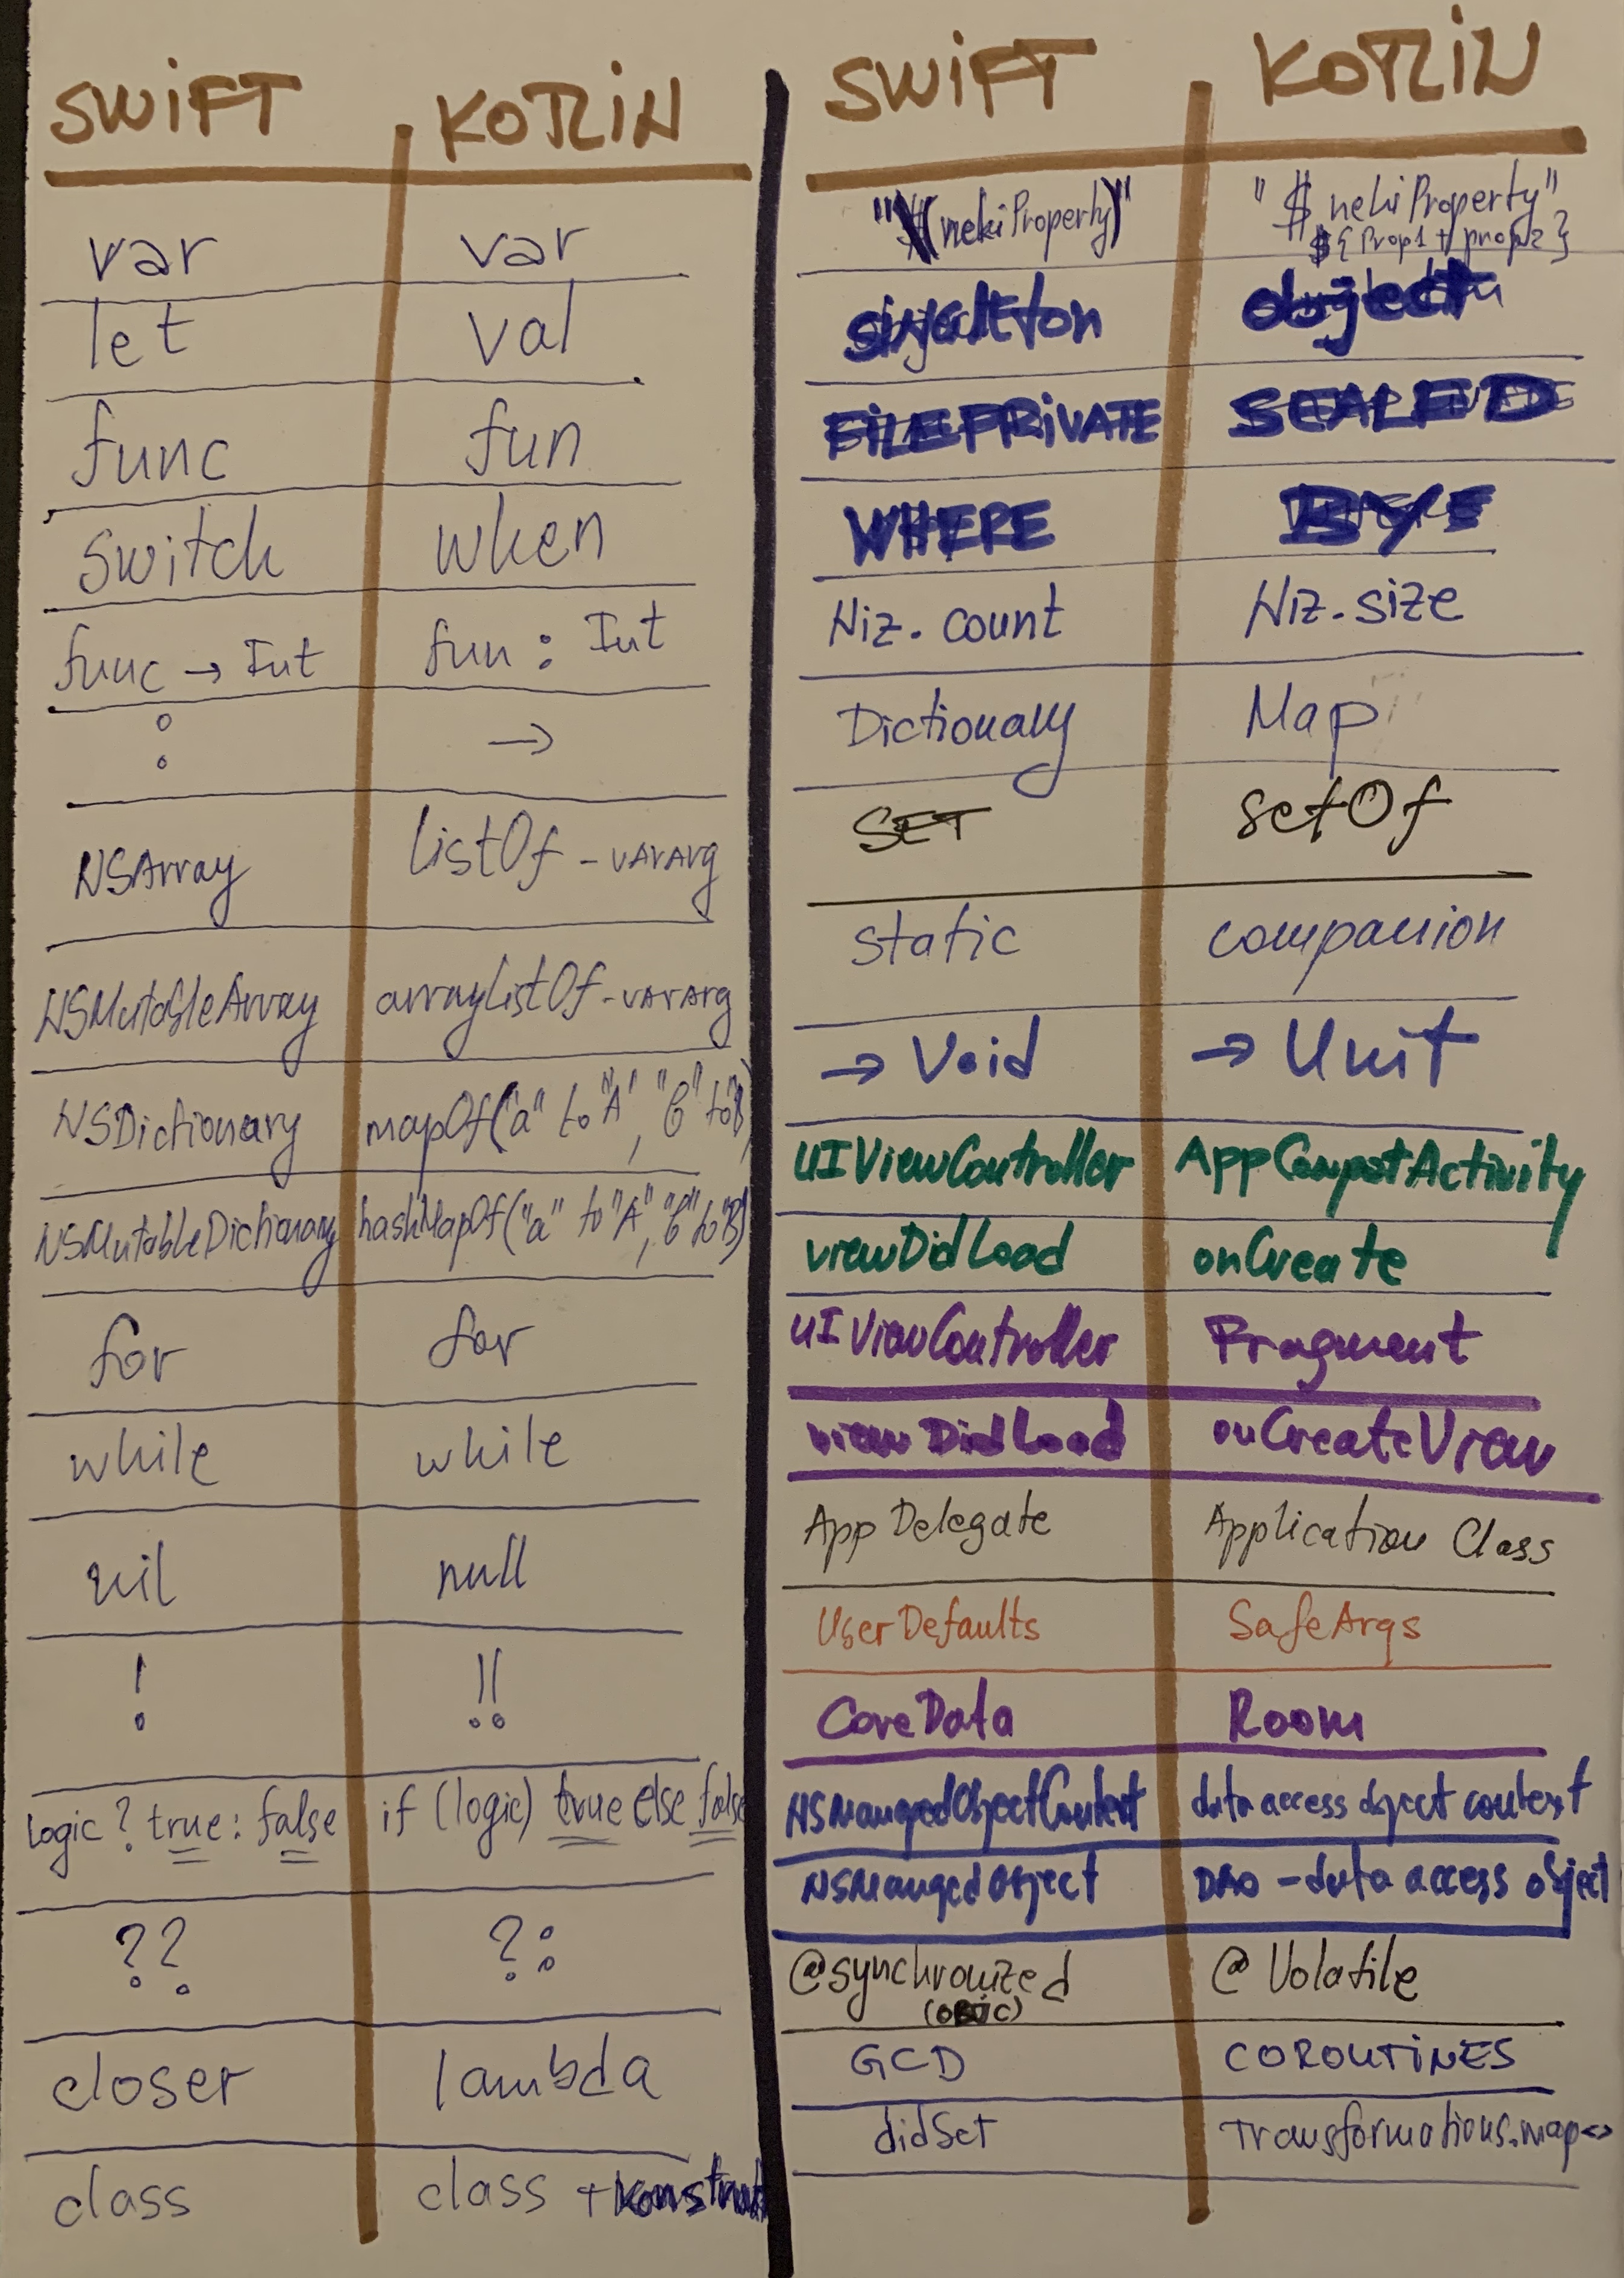 SWiFT KOTLiN
var var
let val
func fun
switch when
func → Int fun : Int
: →
NSArray listOf - VARArg
NSMutableArray arrayListOf - VARArg
NSDictionary mapOf("a" to "A", "b" to "B")
NSMutableDictionary hashMapOf("a" to "A", "b" to "B")
for for
while while
nil null
! !!
logic ? true : false if (logic) true else false
?? ?:
closer lambda
class class +
SWiFT KOTLiN
"\(nekiProperty)" "$ nekiProperty"
${Prop1 + prop2}
singleton object
FiLEPRiVATE SEALED
WHERE BY
Niz. count Niz. size
Dictionary Map
SET setOf
static companion
→ Void → Unit
UIViewController AppCompatActivity
viewDidLoad onCreate
UIViewController Fragment
viewDidLoad onCreateView
App Delegate Application Class
UserDefaults SafeArgs
CoreData Room
NSManagedObjectContext data access object context
NSManagedObject DAO - data access object
@synchronized @ Volatile
(OBJC)
GCD COROUTiNES
didSet Transformations.map<>